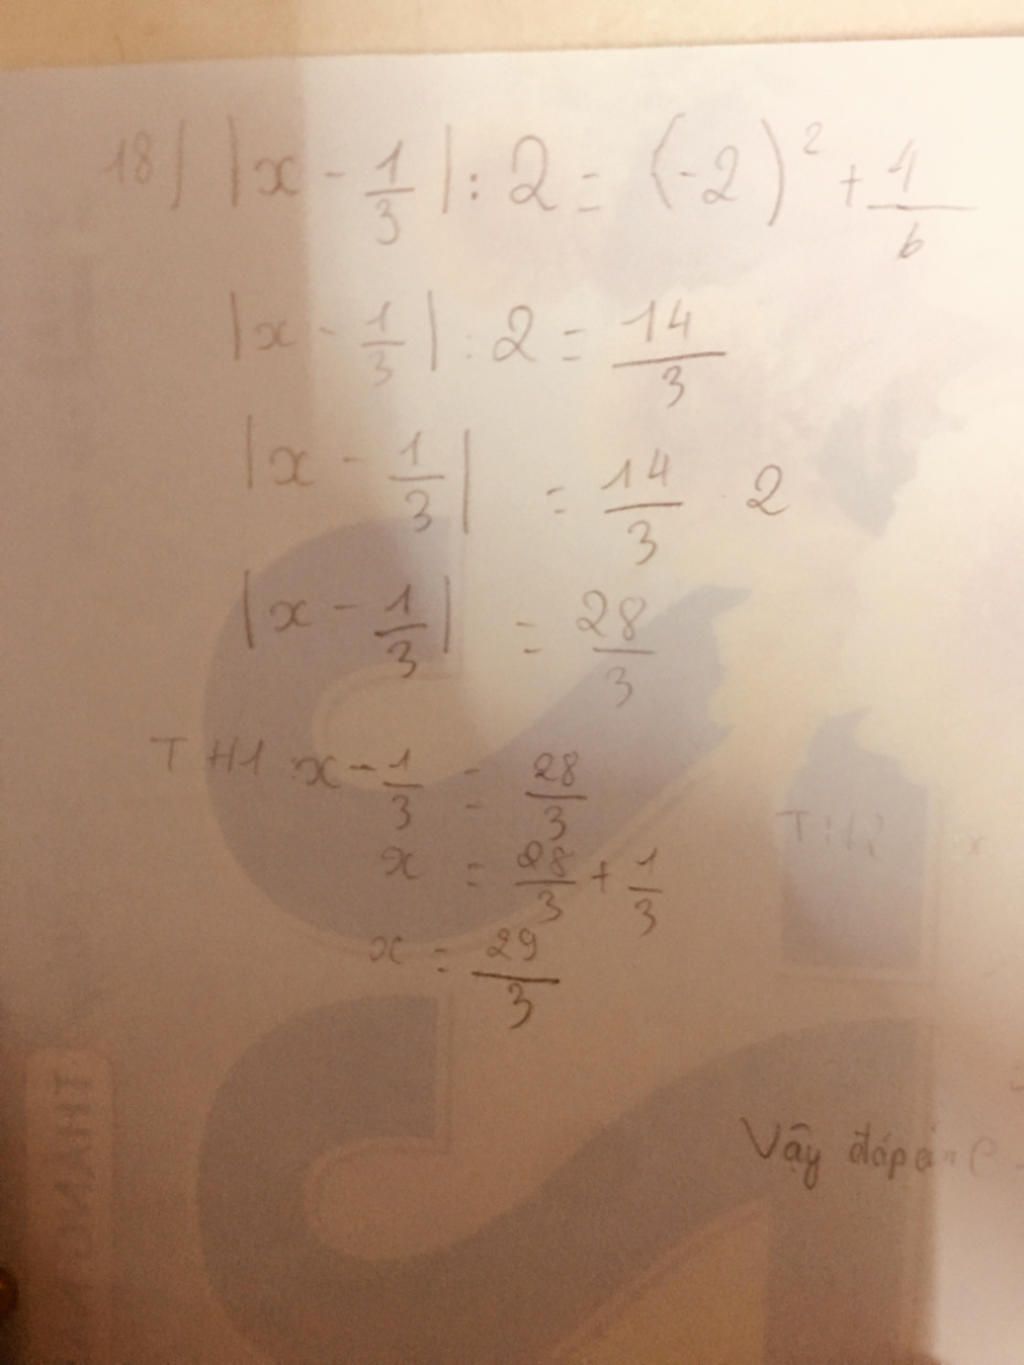 18) |x - 1/3| : 2 = (-2)² + 4/6
|x - 1/3| : 2 = 14/3
|x - 1/3| = 14/3 . 2
|x - 1/3| = 28/3
TH1 x - 1/3 = 28/3
x = 28/3 + 1/3
x = 29/3
TH2 x
Vậy đáp án
THÁNG